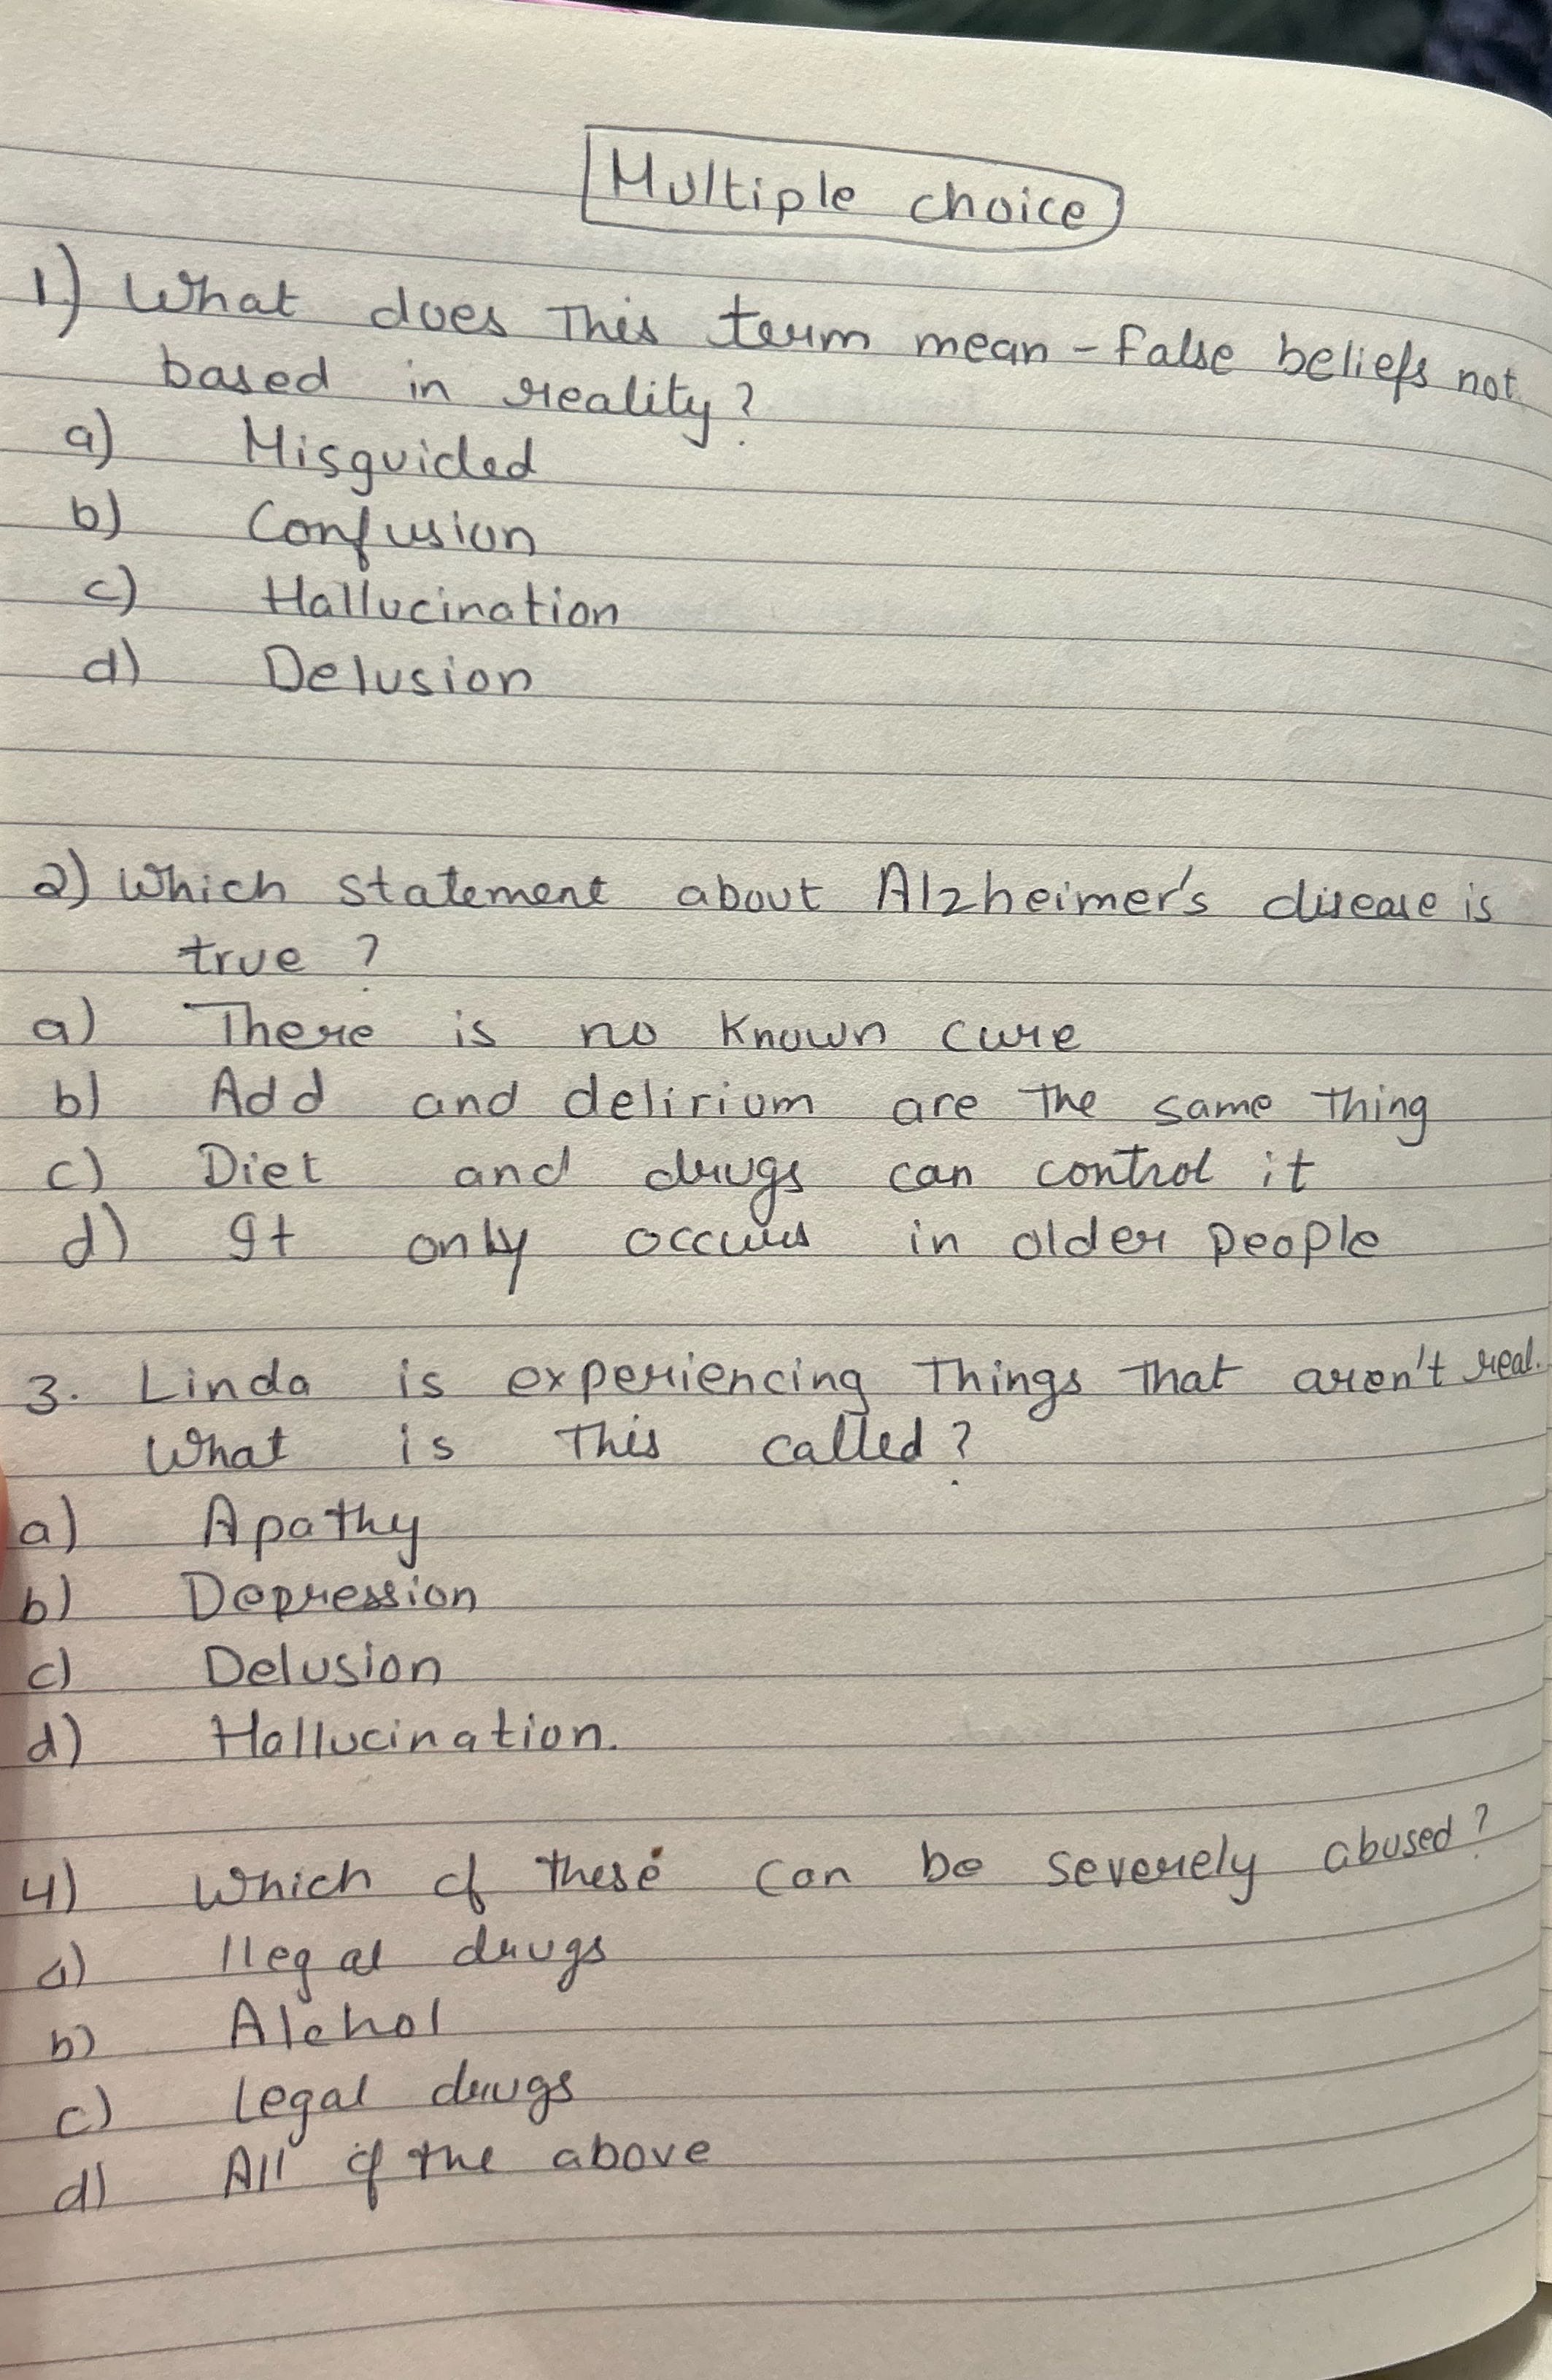 Multiple choice
1) What does This term mean - False beliefs not
based in reality?
a) Misguided
b) Confusion
c) Hallucination
d) Delusion
2) Which statement about Alzheimer's disease is
true ?
a) There is no known cure
b) Add and delirium are the same thing
c) Diet and drugs can control it
d) It only occurs in older people
3. Linda is experiencing Things That aren't real.
What is This called?
a) Apathy
b) Depression
c) Delusion
d) Hallucination.
4) Which of these can be severely abused?
a) Ilegal drugs
b) Alchol
c) Legal drugs
d) All of the above